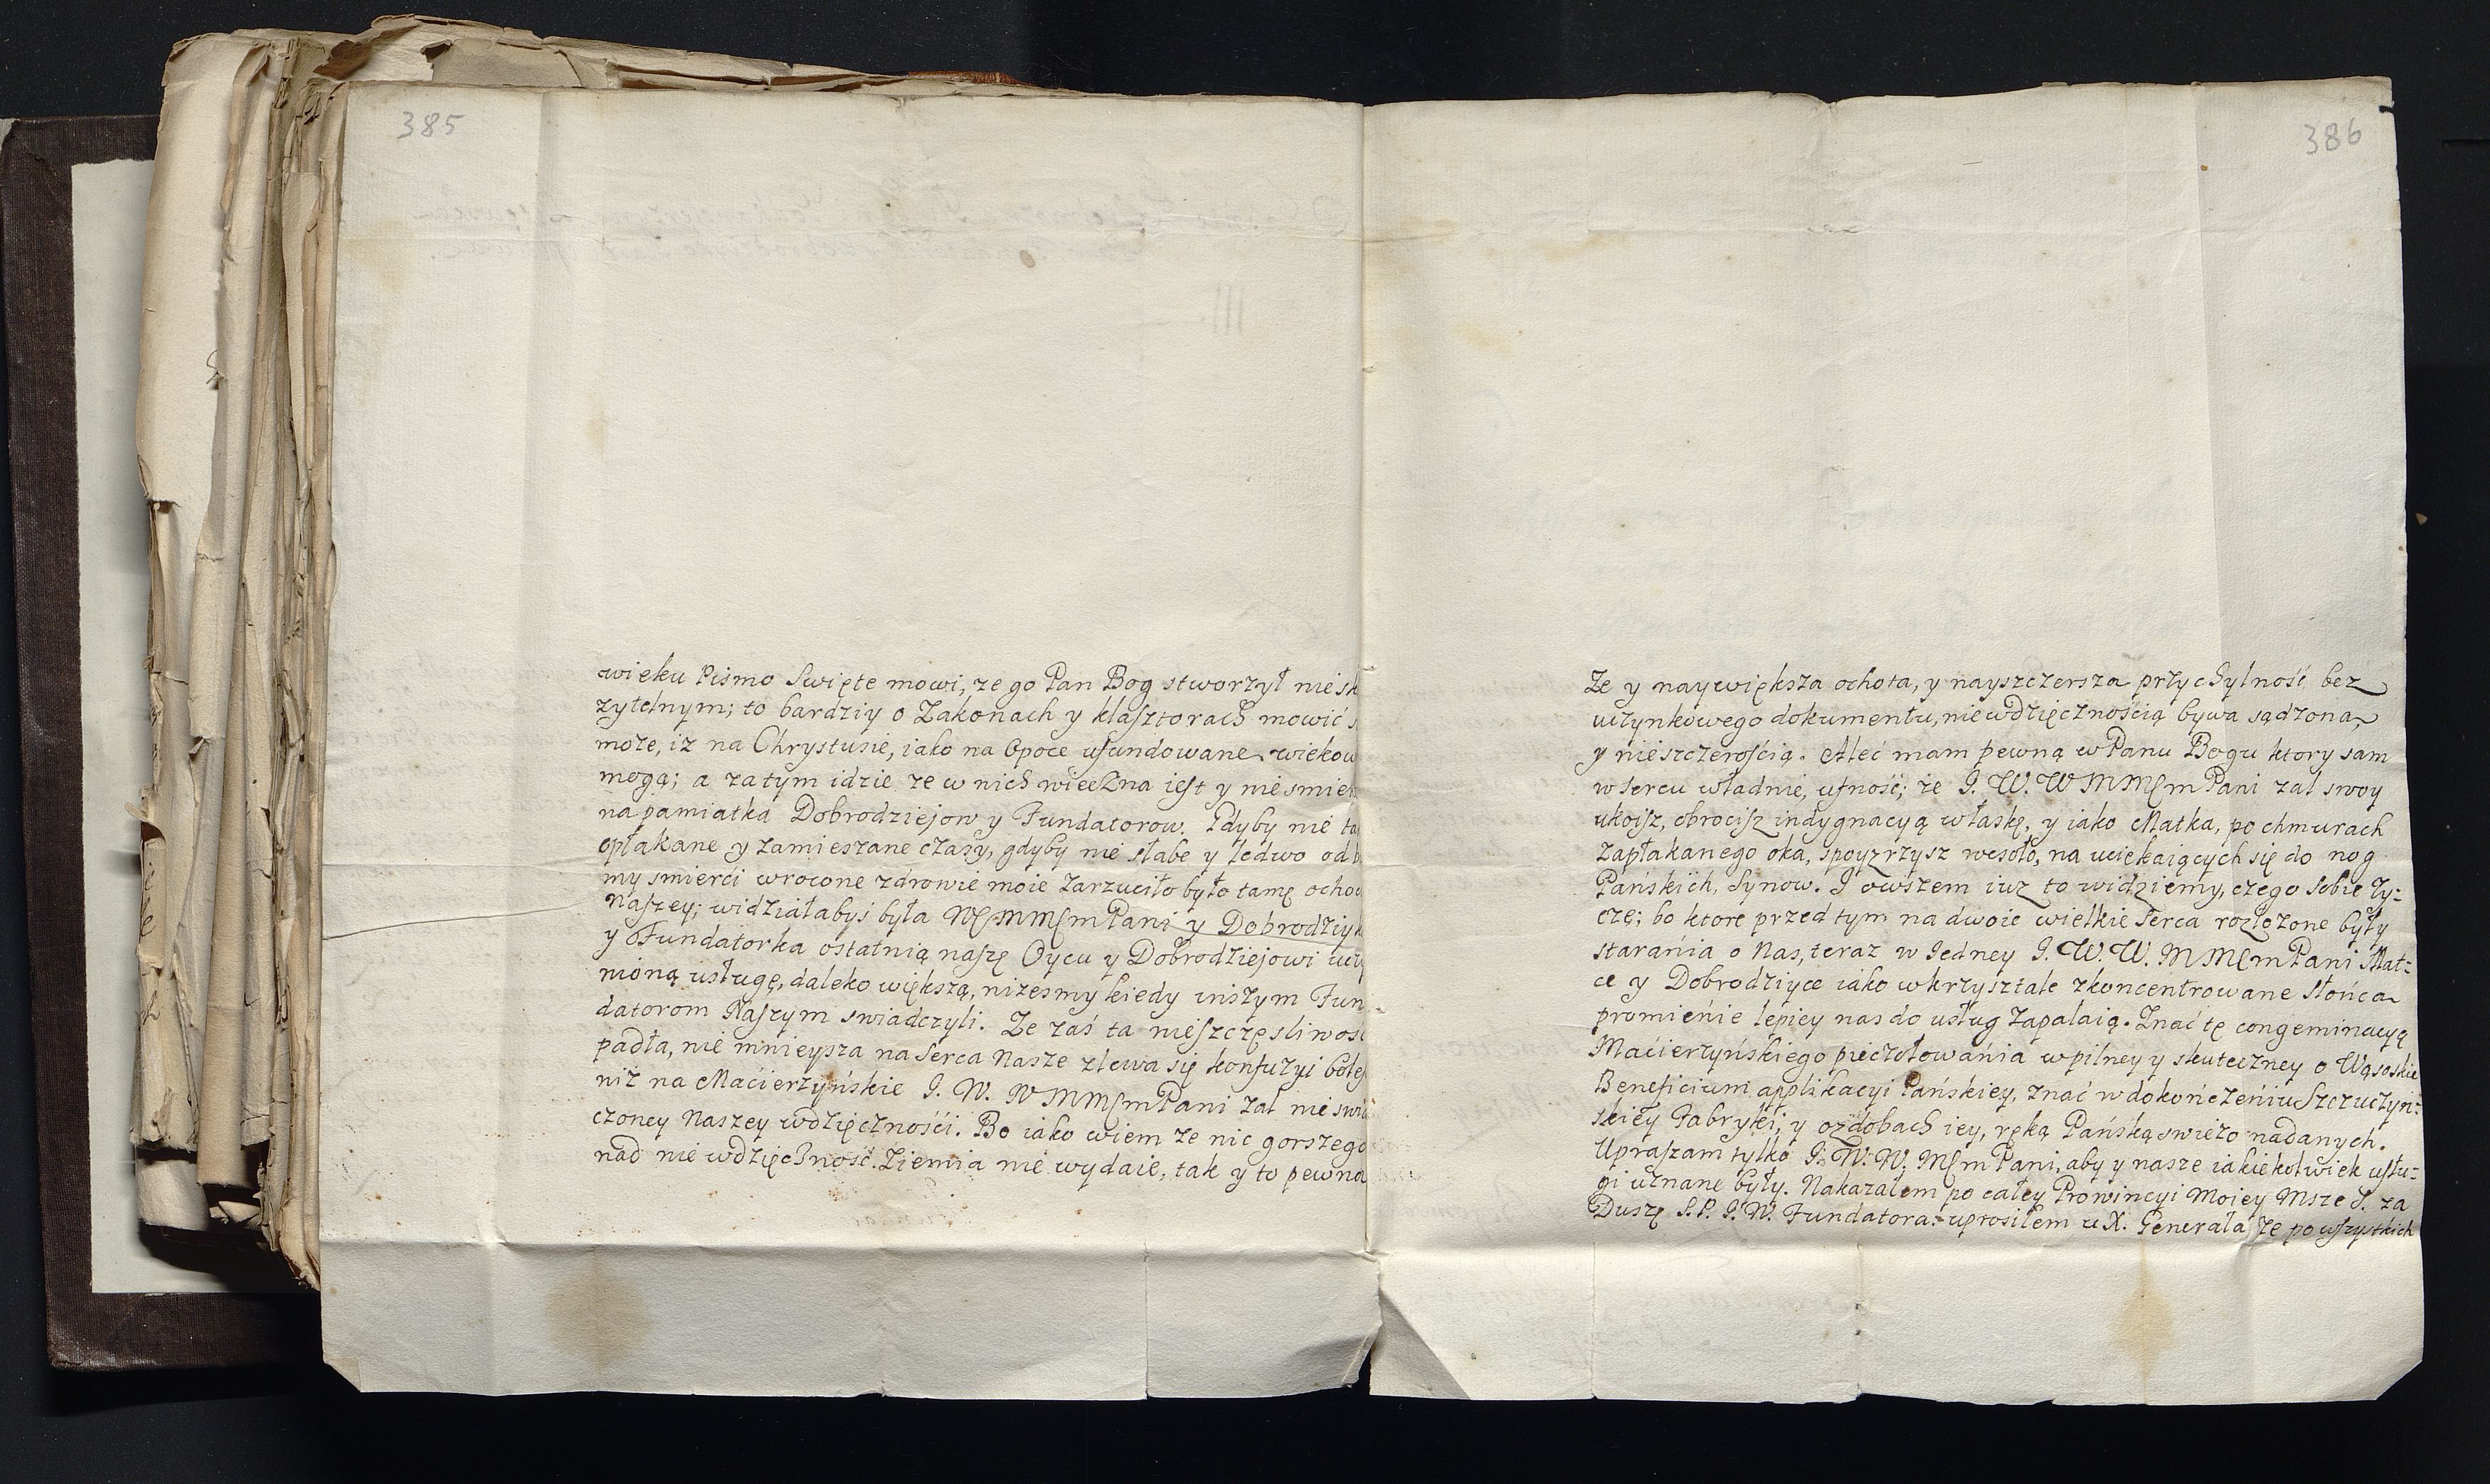 385
wieku Pismo Swięte mowi, ze go Pan Bog stworzył niesk
zytelnym; to bardziy o Zakonach y klasztorach mowić
może, iz na Chrystusie, iako na Opoce ufundowane wiekow
mogą; a zatym idzie ze w nich wieczna iest y niesmier
na pamiatka Dobrodziejow y Fundatorow. Gdyby nie ta
opłakane y zamieszane czasy, gdyby nie słabe y ledwo od b
my smierci wrocone zdrowie moie zarzuciło było tamę ocho
naszey; widziałabyś była WMMPani y Dobrodziyk
y Fundatorka ostatnią naszę Oycu y Dobrodziejowi uczy
nioną usługę, daleko większą, nizesmy kiedy inszym Fun
datorom Naszym swiadczyli. Ze zaś ta nieszczęsliwość
padła, nie mnieysza na serca Nasze zlewa się konfuzyi boleś
niz na Macierzyńskie J. W. W MMPani zal nieswia
czoney Naszey wdzięcznośći. Bo iako wiem ze nic gorszego
nad niewdzięczność Ziemia nie wydaie, tak y to pewna
386
Ze y naywiększa ochota, y nayszczersza przychylność bez
uczynkowego dokumentu, niewdzięcznością bywa sądzona,
y nieszczerością. Aleć mam pewną w Panu Bogu ktory sam
w sercu władnie, ufność; że J. W. W MMmPani zal swoy
ukoisz, obrocisz indygnacyą właskę, y iako Matka, po chmurach
zapłakanego oka, spoyzrzysz wesoło, na uciekaiących się do nog
Pańskich, Synow. I owszem iuz to widziemy, czego sobie zy-
czę; bo ktore przed tym na dwoie wielkie serca rozłozone były
starania o Nas, teraz w Jedney J. W. W. MMmPani Mat-
ce y Dobrodziyce iako w krzysztale zkoncentrowane słońca
promienie lepiey nas do usług zapalaią. Znać tę congeminacyą
Macierzyńskiego pieczołowania w pilney y skuteczney o Wąsoskie
Beneficium applikacyi Pańskiey, znać w dokończeniu Szczuczyn-
skiey Fabryki, y ozdobach iey, ręką Pańską swiezo nadanych.
Upraszam tylko J. W. W. MmPani, aby y nasze iakiekolwiek usłu-
gi uznane były. Nakazałem po całey Prowincyi Moiey Msze S. za
Duszę S.P. J. W. Fundatora: uprosiłem u X. Generała ze po wszystkich